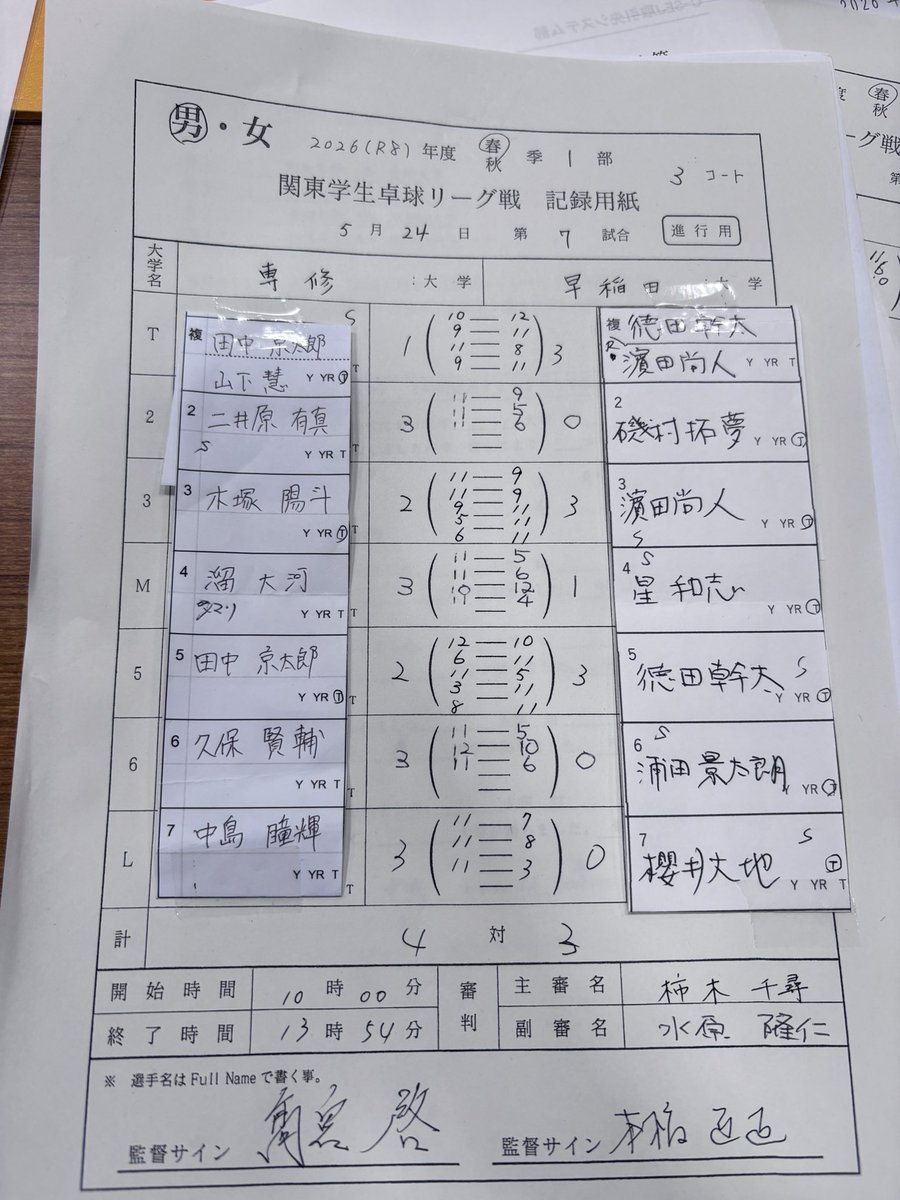 男・女 2026(R8)年度 春 秋 季 1 部
3 コート
関東学生卓球リーグ戦 記録用紙
5 月 24 日 第 7 試合 進行用
大学名 専修 :大学 早稲田 :大学
T 複 田中 京太郎 山下 慧 Y YR T S T
1 ( 10 — 12 9 — 11 11 — 8 9 — 11 ) 3
複 徳田幹太 R 濵田尚人 Y YR T
2 2 二井原 有真 S Y YR T T
3 ( 11 — 9 11 — 5 11 — 6 ) 0
2 磯村拓夢 Y YR T
3 3 木塚 陽斗 Y YR T T
2 ( 11 — 9 11 — 9 9 — 11 5 — 11 6 — 11 ) 3
3 濵田尚人 Y YR T S
M 4 溜 大河 タマリ Y YR T T
3 ( 11 — 5 11 — 6 10 — 12 11 — 4 ) 1
4 S 星 和志 Y YR T
5 5 田中 京太郎 Y YR T T
2 ( 12 — 10 6 — 11 11 — 5 3 — 11 8 — 11 ) 3
5 徳田幹太 S Y YR T
6 6 久保 賢輔 Y YR T T
3 ( 11 — 5 12 — 10 11 — 6 ) 0
6 S 浦田 景太朗 Y YR T
L 7 中島 瞳輝 Y YR T T
3 ( 11 — 7 11 — 8 11 — 3 ) 0
7 櫻井大地 S T Y YR T
計 4 対 3
開始時間 10 時 00 分 審判 主審名 柿木 千尋
終了時間 13 時 54 分 副審名 水原 隆仁
※ 選手名はFull Nameで書く事。
監督サイン 監督サイン